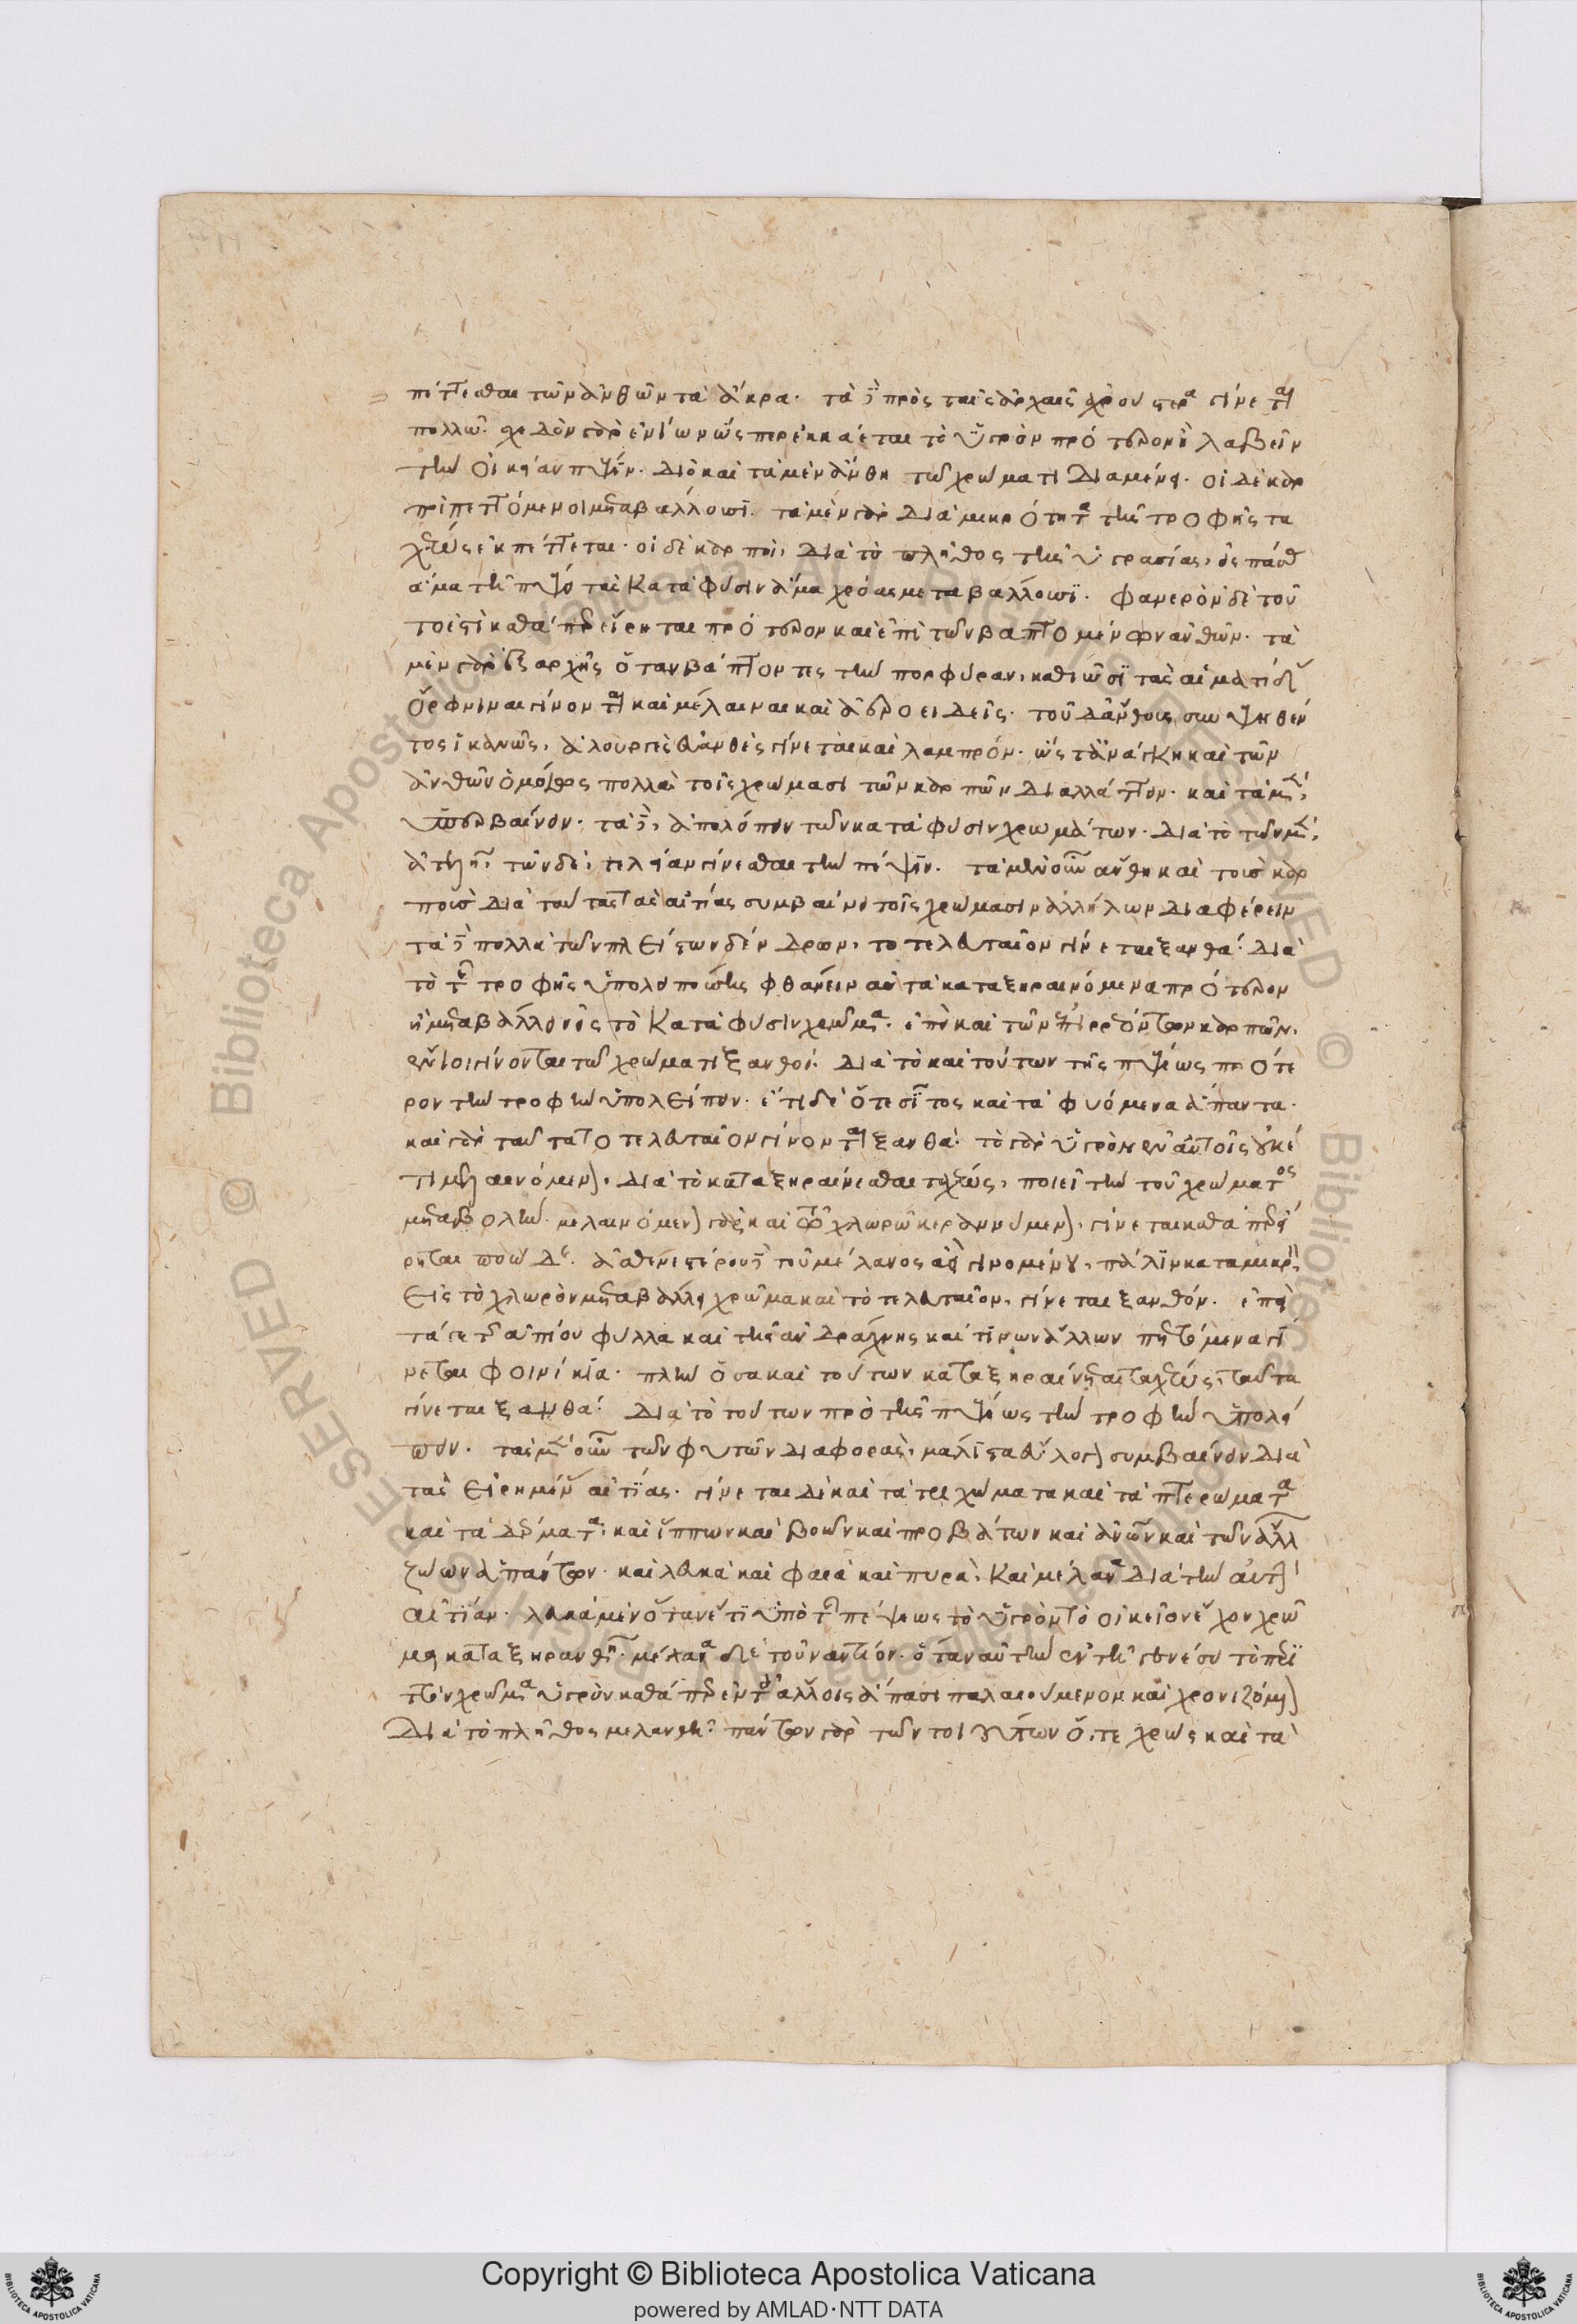 πέττεσθαι τῶν ἀνθῶν τὰ ἄκρα. τὰ δὲ πρὸς ταῖς ἀρχαῖς ἀχρούστερα γίνεται
πολλῷ. σχεδὸν γὰρ ἐνίων ὥσπερ ἐκκάεται τὸ ὑγρὸν πρότερον ἢ λαβεῖν
τὴν οἰκείαν πέψιν. διὸ καὶ τὰ μὲν ἄνθη τῷ χρώματι διαμένει. οἱ δὲ καρ
ποὶ πεττόμενοι μεταβάλλουσι. τὰ μὲν γὰρ διὰ μικρότητα τῆς τροφῆς τα
χέως ἐκπέττεται. οἱ δὲ καρποὶ, διὰ τὸ πλῆθος τῆς ὑγρασίας, εἰς πάσας
ἅμα τῇ πέψει τὰς κατὰ φύσιν ἅμα χρόας μεταβάλλουσι. φανερὸν δὲ τοῦ
τό ἐστι καθάπερ εἴρηται πρότερον καὶ ἐπὶ τῶν βαπτομένων ἀνθῶν. τὰ
μὲν γὰρ ἐξ ἀρχῆς ὅταν βάπτοντες τὴν πορφύραν, καθιῶσι τὰς αἱματίδας
ὄρφνιναι γίνονται καὶ μέλαιναι καὶ ἀεροειδεῖς. τοῦ δ' ἄνθους συνεψηθέν
τος ἱκανῶς, ἁλουργὲς εὐανθὲς γίνεται καὶ λαμπρόν. ὥστ' ἀνάγκη καὶ τῶν
ἀνθῶν ὁμοίως πολλὰ τοῖς χρώμασι τῶν καρπῶν διαλλάττειν. καὶ τὰ μὲν,
ὑπερβαίνειν. τὰ δὲ, ἀπολείπειν τῶν κατὰ φύσιν χρωμάτων. διὰ τὸ τῶν μὲν,
ἀτελῆ, τῶν δὲ, τελείαν γίνεσθαι τὴν πέψιν. τὰ μὲν οὖν ἄνθη καὶ τοὺς καρ
ποὺς διὰ ταύτας τὰς αἰτίας συμβαίνει τοῖς χρώμασιν ἀλλήλων διαφέρειν
τὰ δὲ πολλὰ τῶν πλείστων δένδρων, τὸ τελευταῖον γίνεται ξανθά. διὰ
τὸ τῆς τροφῆς ὑπολειπούσης φθάνειν αὐτὰ καταξηραινόμενα πρότερον
ἢ μεταβάλλειν εἰς τὸ κατὰ φύσιν χρῶμα. ἐπεὶ καὶ τῶν ἀπορρεόντων καρπῶν,
ἔνιοι γίνονται τῷ χρώματι ξανθοί. διὰ τὸ καὶ τούτων τῆς πέψεως πρότε
ρον τὴν τροφὴν ὑπολείπειν. ἔτι δὲ ὅ τε σῖτος καὶ τὰ φυόμενα ἅπαντα.
καὶ γὰρ ταῦτα τὸ τελευταῖον γίνονται ξανθά. τὸ γὰρ ὑγρὸν ἐν αὐτοῖς οὐκέ
τι μελαινόμενον, διὰ τὸ καταξηραίνεσθαι ταχέως, ποιεῖ τὴν τοῦ χρώματος
μεταβολήν. μελαινόμενον γὰρ καὶ τῷ χλωρῷ κεραννύμενον, γίνεται καθάπερ εἴ
ρηται ποῶδες. ἀσθενεστέρου δὲ τοῦ μέλανος ἀεὶ γινομένου, πάλιν κατὰ μικρὸν
εἰς τὸ χλωρὸν μεταβάλλει χρῶμα καὶ τὸ τελευταῖον, γίνεται ξανθόν. ἐπεὶ
τά γε τῆς ἀπίου φύλλα καὶ τῆς ἀνδράχνης καὶ τινων ἄλλων πεττόμενα γί
νεται φοινίκια. πλὴν ὅσα καὶ τούτων καταξηραίνεται ταχέως, ταῦτα
γίνεται ξανθά. διὰ τὸ τούτων πρὸ τῆς πέψεως τὴν τροφὴν ὑπολεί
πειν. τὰς μὲν οὖν τῶν φυτῶν διαφορὰς, μάλιστα εὔλογον συμβαίνειν διὰ
τὰς εἰρημένας αἰτίας. γίνεται δὲ καὶ τὰ τριχώματα καὶ τὰ πτερώματα
καὶ τὰ δέρματα, καὶ ἵππων καὶ βοῶν καὶ προβάτων καὶ ἀνθρώπων καὶ τῶν ἄλλων
ζώων ἁπάντων. καὶ λευκὰ καὶ φαιὰ καὶ πυρρὰ, καὶ μέλανα διὰ τὴν αὐτὴν
αἰτίαν. λευκὰ μὲν ὅταν ἔτι ὑπὸ τῆς πέψεως τὸ ὑγρὸν τὸ οἰκεῖον ἔχον χρῶ
μα καταξηρανθῇ. μέλανα δὲ τοὐναντίον. ὅταν αὖ τὴν ἐν τῇ γενέσει τὸ περὶ
τὸν χρῶμα ὑγρὸν καθάπερ ἐν τοῖς ἄλλοις ἅπασι παλαιούμενον καὶ χρονιζόμενον
διὰ τὸ πλῆθος μελανθῇ. πάντων γὰρ τῶν τοιούτων ὅ, τε χρὼς καὶ τὰ
Copyright © Biblioteca Apostolica Vaticana
powered by AMLAD·NTT DATA